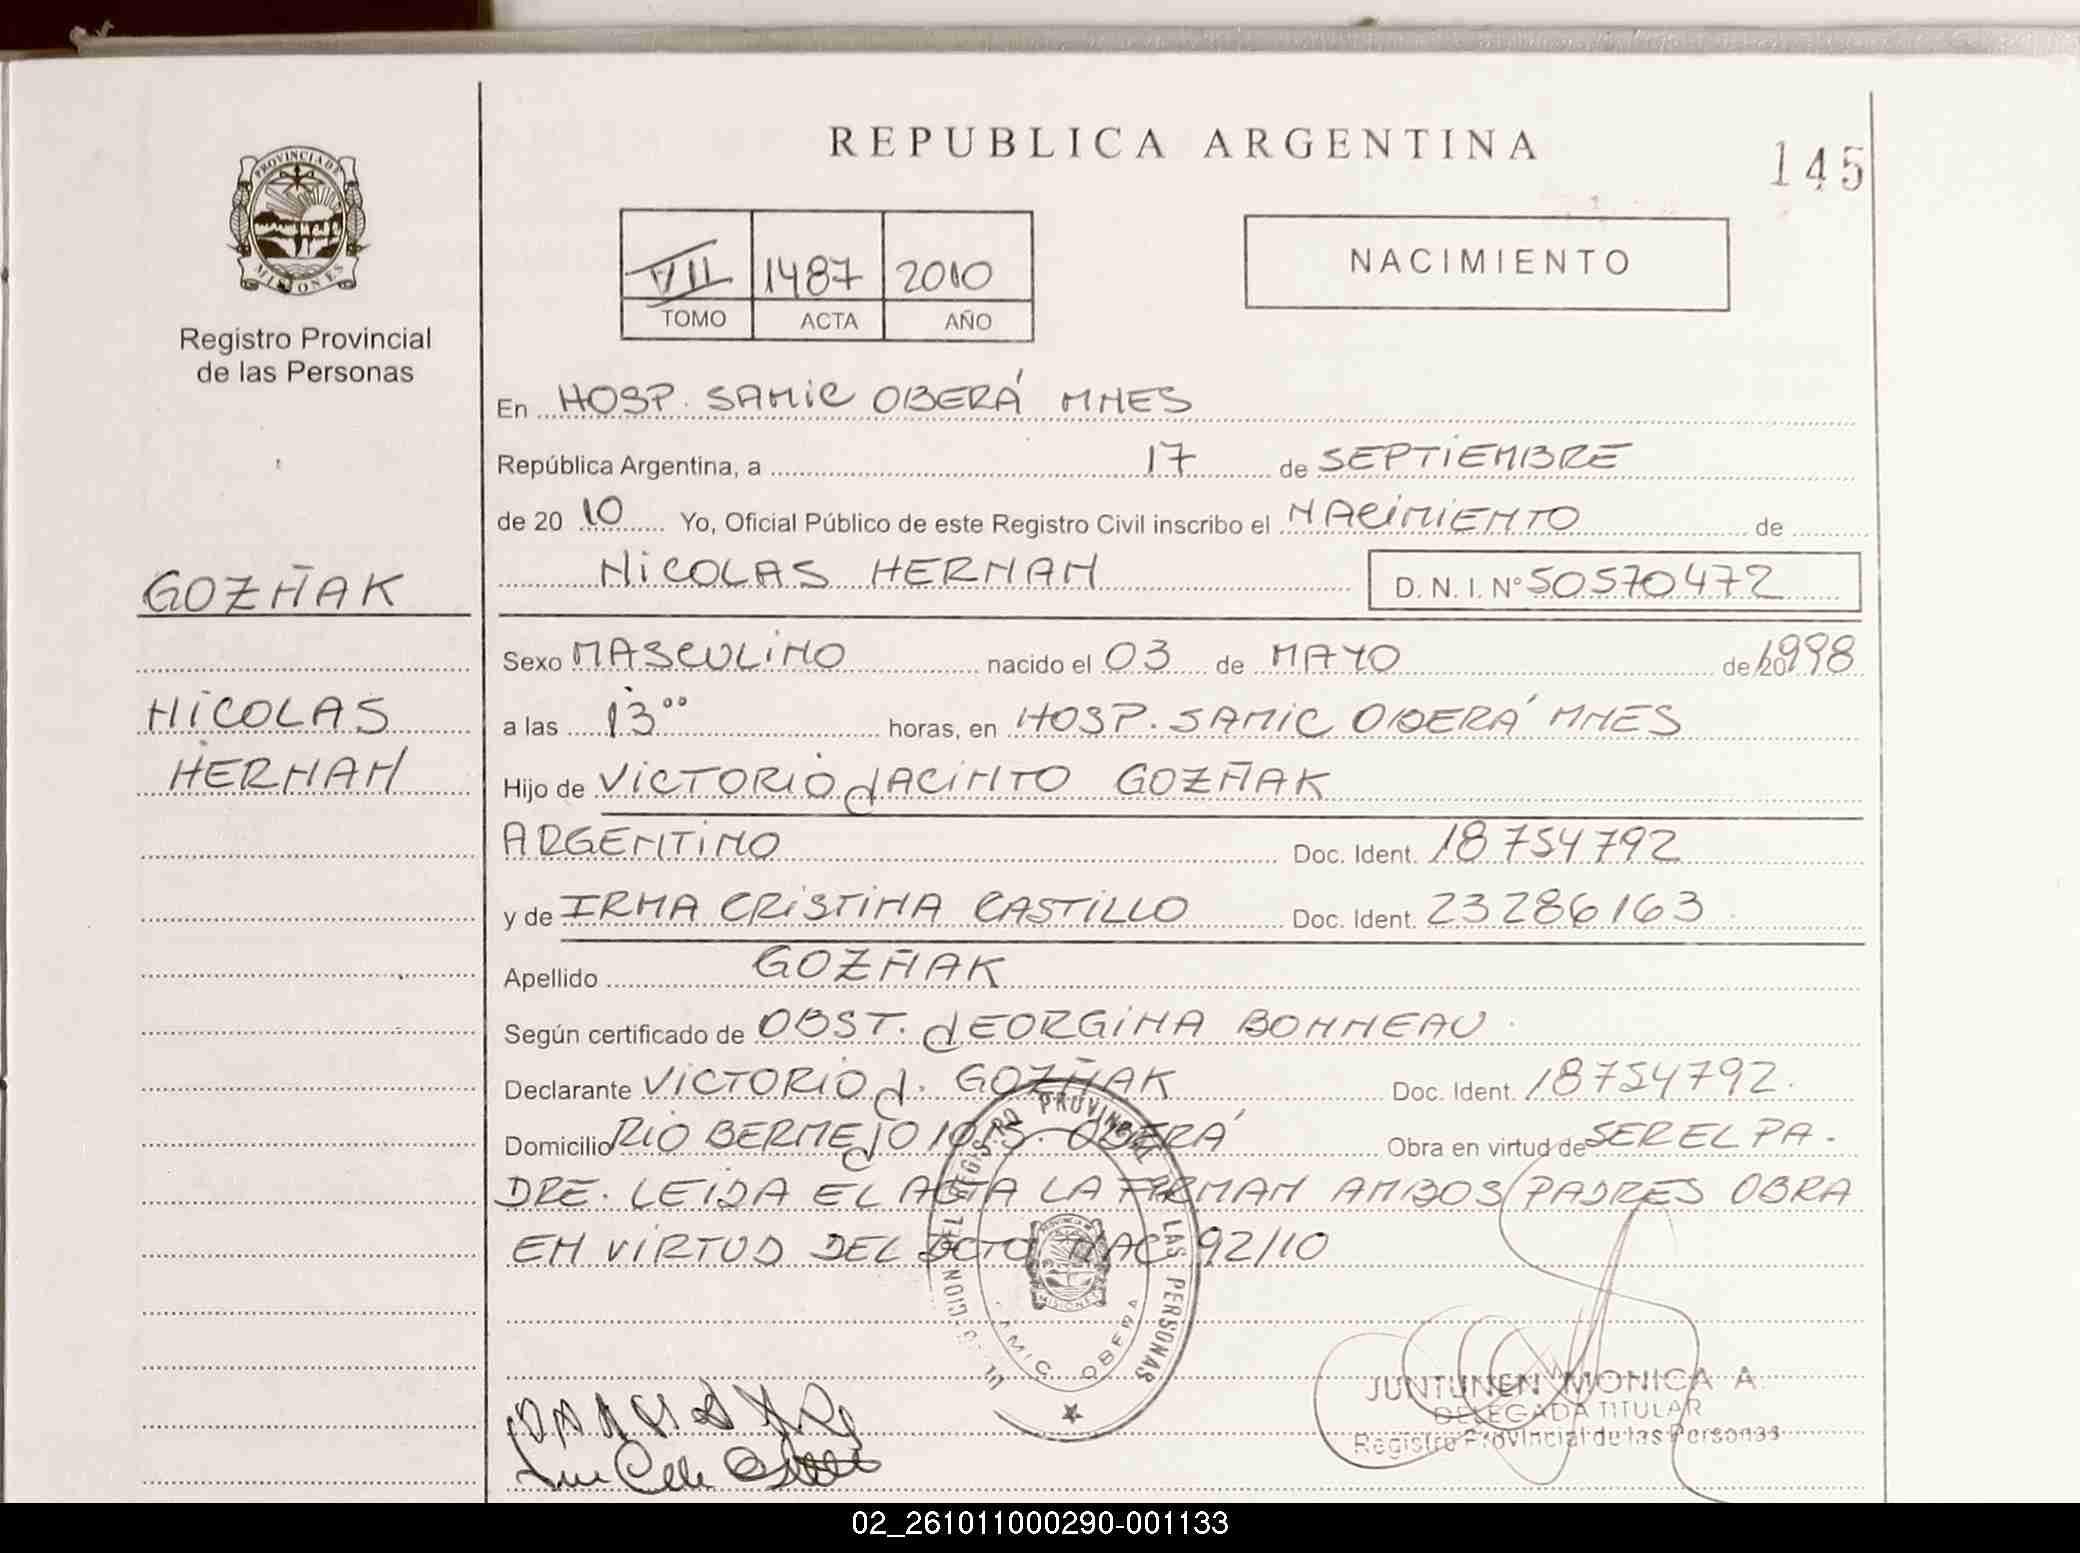 REPUBLICA ARGENTINA
145
PROVINCIA DE
MISIONES
Registro Provincial
de las Personas
VII 1487 2010
TOMO ACTA AÑO
NACIMIENTO
En HOSP. SAMIC OBERÁ MNES
República Argentina, a 17 de SEPTIEMBRE
de 20 10 Yo, Oficial Público de este Registro Civil inscribo el NACIMIENTO de
NICOLAS HERNAN D. N. I. Nº 50570472
GOZÑAK
NICOLAS
HERNAN
Sexo MASCULINO nacido el 03 de MAYO de 1998
a las 13°° horas, en HOSP. SAMIC OBERÁ MNES
Hijo de VICTORIO JACINTO GOZÑAK
ARGENTINO Doc. Ident. 18754792
y de IRMA CRISTINA CASTILLO Doc. Ident. 23286163
Apellido GOZÑAK
Según certificado de OBST. GEORGINA BONNEAU.
Declarante VICTORIO J. GOZÑAK Doc. Ident. 18754792.
Domicilio RIO BERMEJO 1015. OBERÁ Obra en virtud de SER EL PA-
DRE. LEIDA EL ACTA LA FIRMAN AMBOS PADRES OBRA
EN VIRTUD DEL DCTO NAC 92/10
DEL REGISTRO PROVINCIAL DE LAS PERSONAS
OBERA
MISIONES
JUNTUNEN MONICA A
DELEGADA TITULAR
Registro Provincial de las Personas
02_261011000290-001133